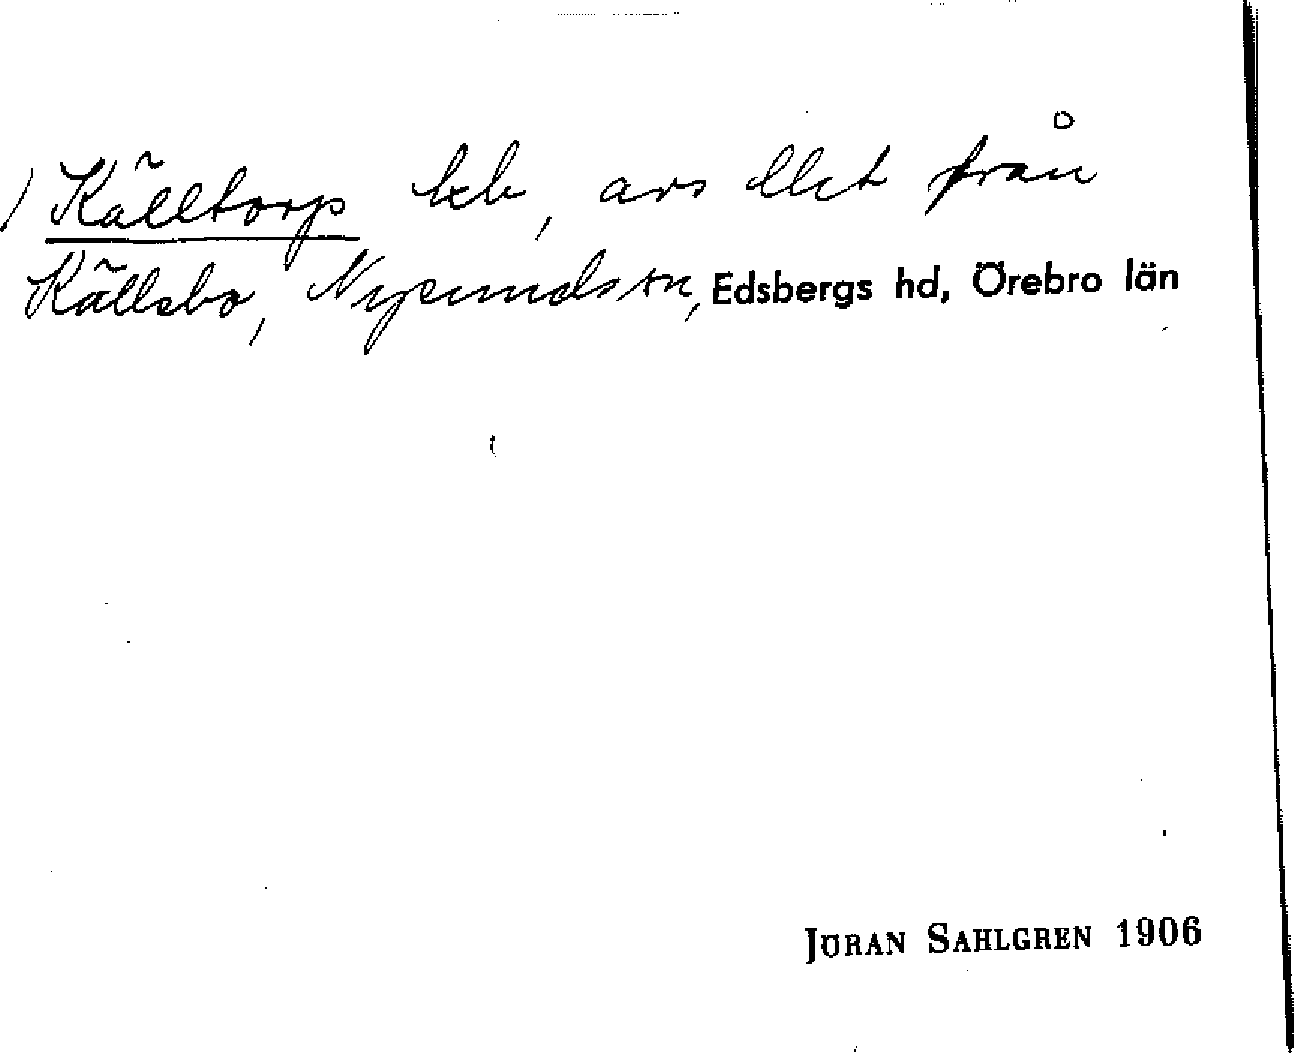 ) Källtorp lht, avs ellet från
Källsbo, Nysunds sn, Edsbergs hd, Örebro län
JÖRAN SAHLGREN 1906